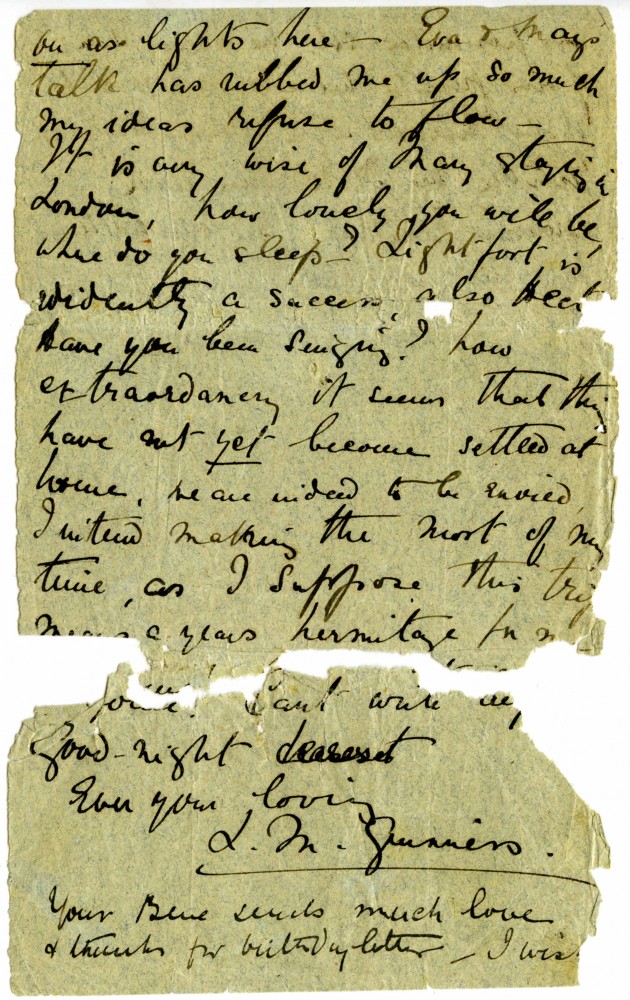 on as lights here – Eva & May's
talk has rubbed me up so much
my ideas refuse to flow –
It is very wise of Mary staying in
London, how lonely you will be,
where do you sleep –? Lightfoot is
evidently a success, also
Have you been singing? how
extraordanery it seems that thing
have not yet become settled at
home, we are indeed to be envied,
I intend making the most of my
time, as I suppose this trip
means a years hermitage for
Can't write
Good-night dearest
Ever your loving
L. M.
Your sends much love
& thanks for birthday letter – I wis